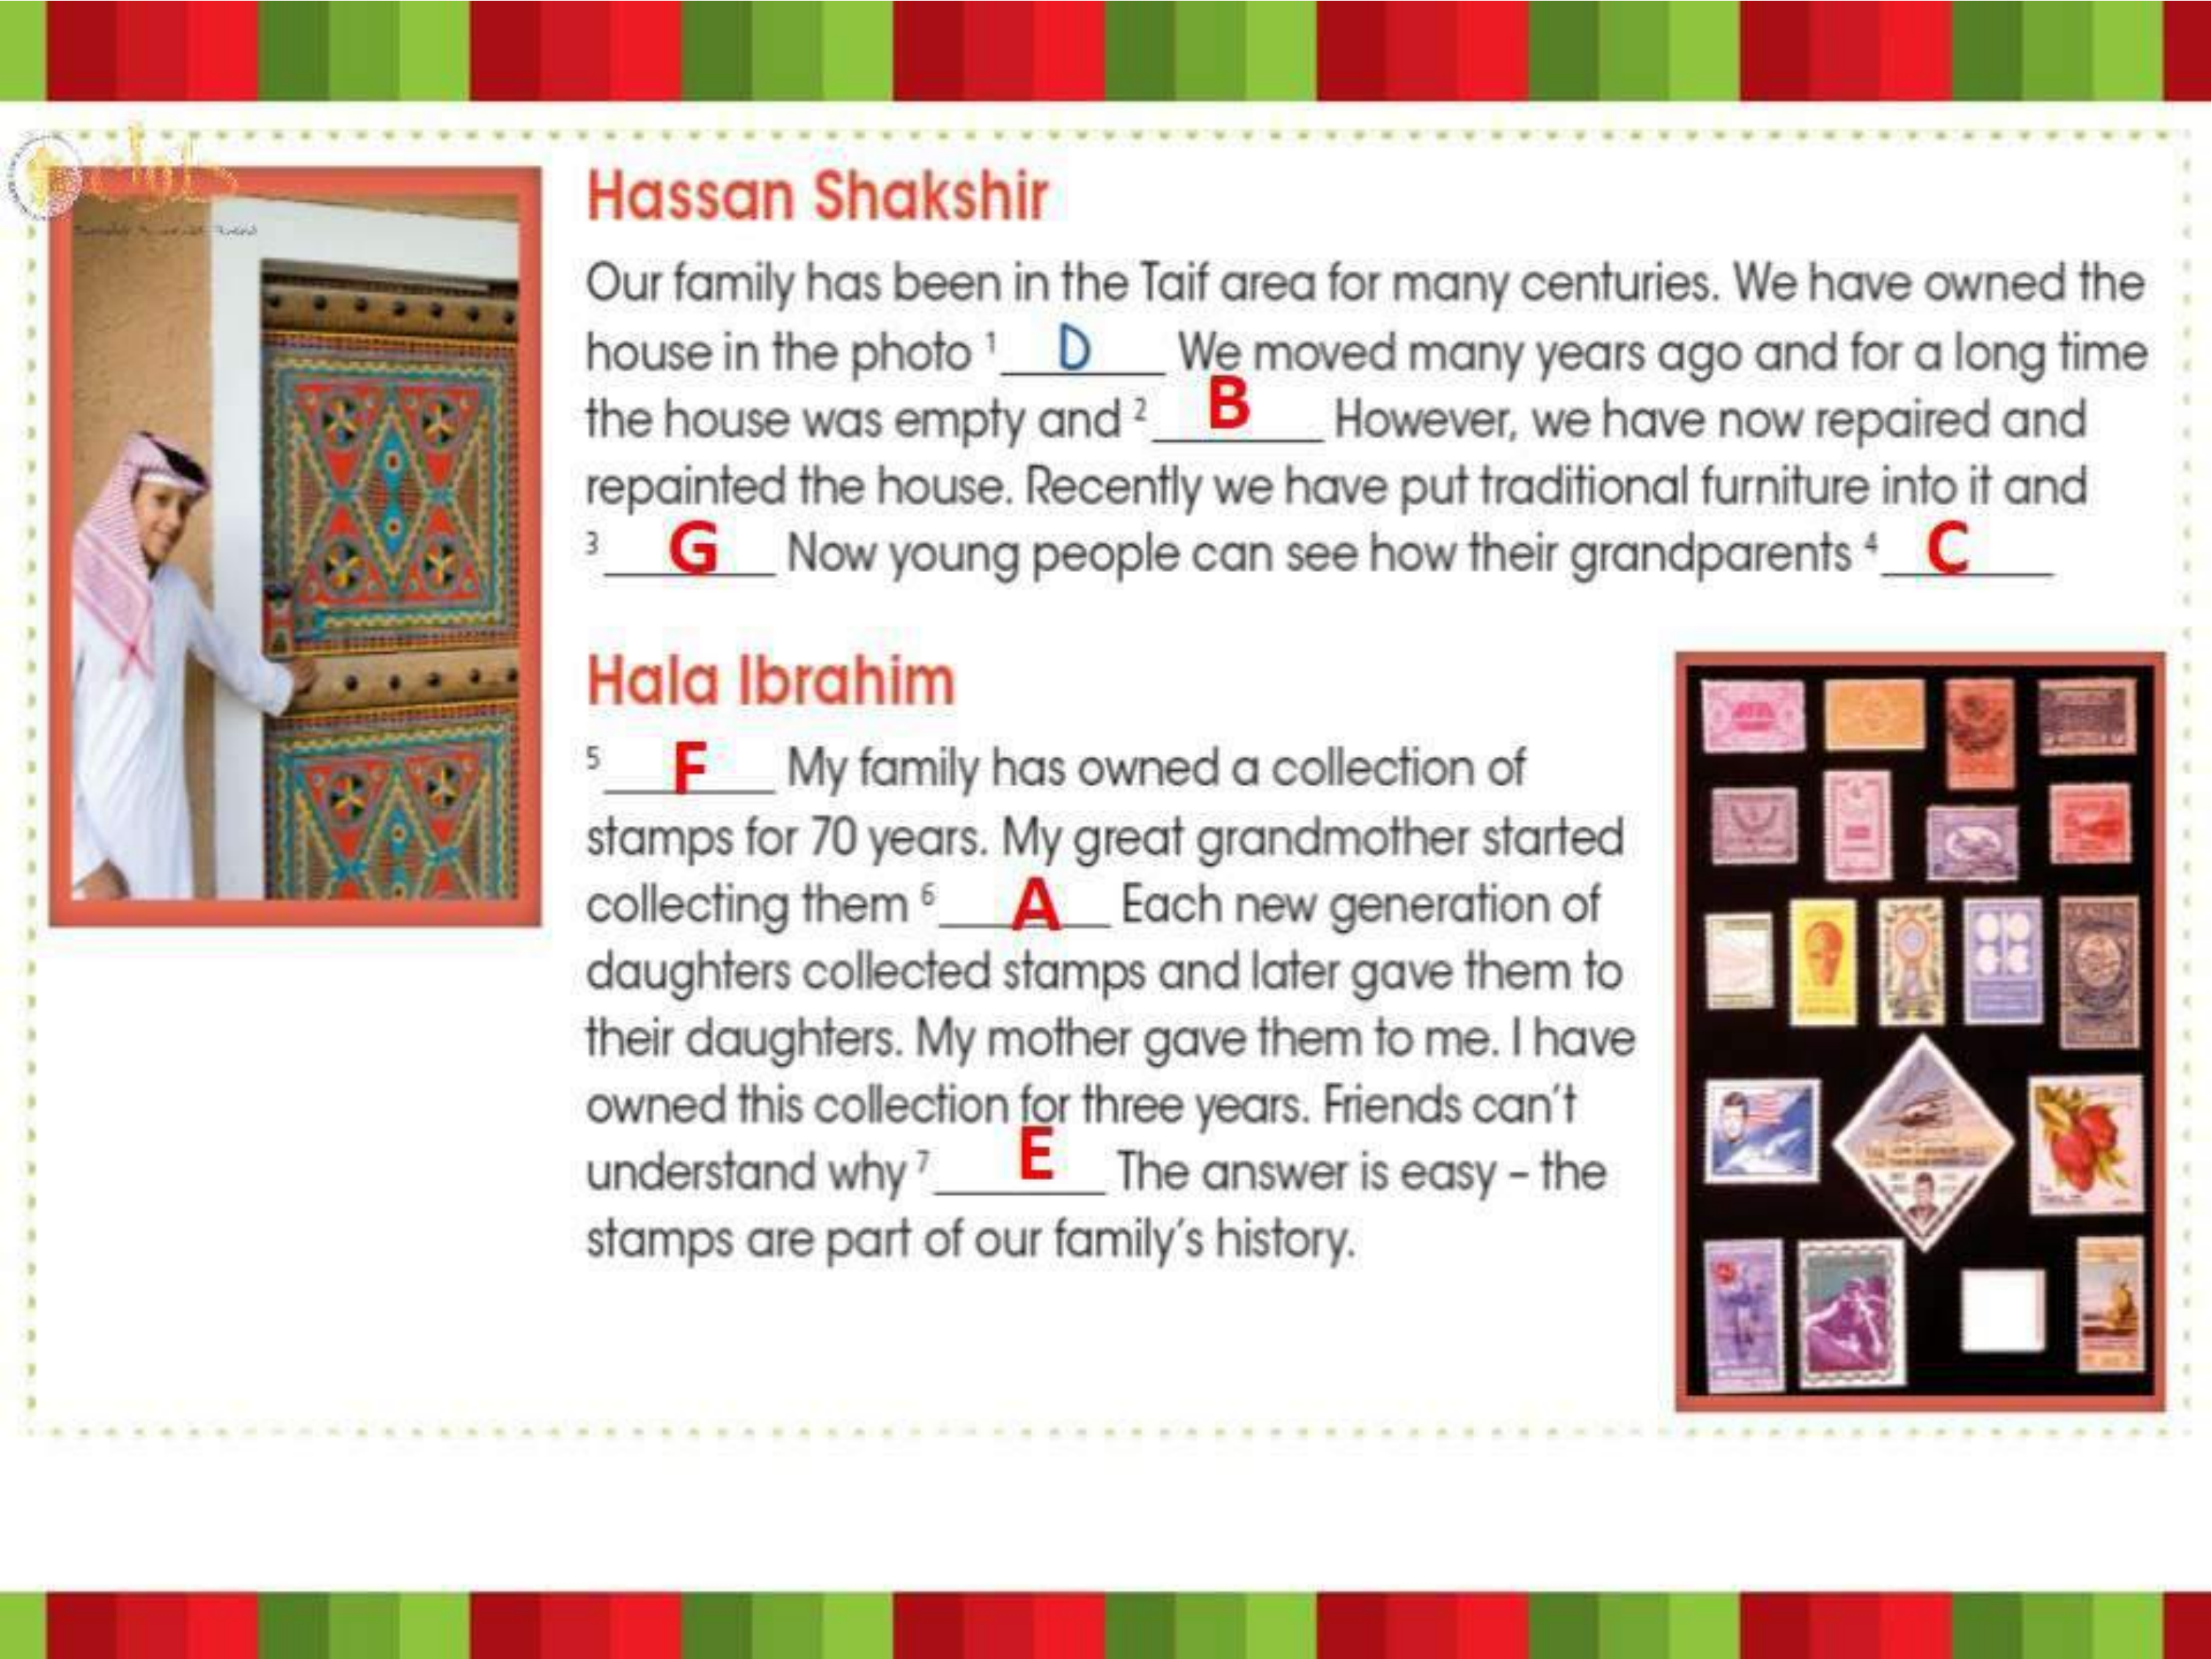 حلول
Hassan Shakshir
Our family has been in the Taif area for many centuries. We have owned the
house in the photo ¹ D We moved many years ago and for a long time
the house was empty and ² B However, we have now repaired and
repainted the house. Recently we have put traditional furniture into it and
³ G Now young people can see how their grandparents ⁴ C
Hala Ibrahim
⁵ F My family has owned a collection of
stamps for 70 years. My great grandmother started
collecting them ⁶ A Each new generation of
daughters collected stamps and later gave them to
their daughters. My mother gave them to me. I have
owned this collection for three years. Friends can't
understand why ⁷ E The answer is easy – the
stamps are part of our family's history.